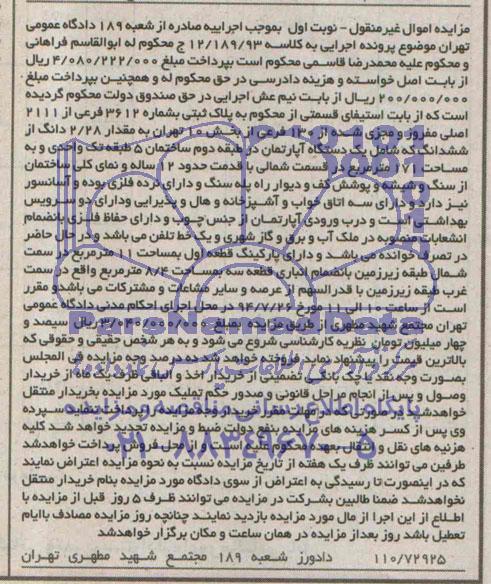 مزایده اموال غیرمنقول - نوبت اول بموجب اجراییه صادره از شعبه ۱۸۹ دادگاه عمومی
تهران موضوع پرونده اجرایی به کلاسه ۱۲/۱۸۹/۹۳ ج محکوم له ابوالقاسم فراهانی
و محکوم علیه محمدرضا قاسمی محکوم است بپرداخت مبلغ ۴/۰۸۰/۲۲۲/۰۰۰ ریال
از بابت اصل خواسته و هزینه دادرسی در حق محکوم له و همچنین بپرداخت مبلغ
۲۰۰/۰۰۰/۰۰۰ ریال از بابت نیم عشر اجرایی در حق صندوق دولت محکوم گردیده
است که از بابت استیفای قسمتی از محکوم به پلاک ثبتی بشماره ۳۶۱۲ فرعی از ۲۱۱۱
اصلی مفروز و مجزی شده از ۱۳۰ فرعی از بخش ۱۰ تهران به مقدار ۲/۲۸ دانگ از
ششدانگ که شامل یک دستگاه آپارتمان در طبقه دوم ساختمان ۵ طبقه تک واحدی و به
مساحت ۱۷۱ مترمربع در قسمت شمالی با قدمت حدود ۱۲ ساله و نمای کلی ساختمان
از سنگ و شیشه و پوشش کف و دیوار راه پله سنگ و دارای نرده فلزی بوده و آسانسور
نیز دارد و دارای سه اتاق خواب و آشپزخانه و هال و پذیرایی ودارای دو سرویس
بهداشتی است و درب ورودی آپارتمان از جنس چوب و دارای حفاظ فلزی بانضمام
انشعابات منصوبه در ملک آب و برق و گاز شهری و یک خط تلفن می باشد و در حال حاضر
در تصرف خوانده می باشد و دارای پارکینگ قطعه اول بمساحت مترمربع در سمت
شمال طبقه زیرزمین بانضمام انباری قطعه سه بمساحت ۸/۴ مترمربع واقع در سمت
غرب طبقه زیرزمین با قدرالسهم از عرصه و سایر مشاعات و مشترکات می باشد و مقرر
است از ساعت ۱۰ الی ۱۱ مورخ ۹۴/۷/۲۶ در محل اجرای احکام مدنی دادگاه عمومی
تهران مجتمع شهید مطهری از طریق مزایده بمبلغ ۳/۰۴۰/۰۰۰/۰۰۰ ریال سیصد و
چهار میلیون تومان نظریه کارشناسی شروع می شود و به هر شخص حقیقی و حقوقی که
بالاترین قیمت را پیشنهاد نماید فروخته خواهد شد ده درصد وجه مزایده فی المجلس
بصورت وجه نقد یا چک بانکی تضمینی از خریدار اخذ و الباقی ظرف یک ماه از خریدار
وصول و پس از انجام مراحل قانونی و صدور حکم تملیک مورد مزایده بنام خریدار منتقل
خواهدشد در صورتی که در مهلت مقرر خریدار وجه مزایده را پرداخت ننماید سپرده
وی پس از کسر هزینه های مزایده بنفع دولت ضبط و مزایده تجدید خواهد شد کلیه
هزنیه های نقل و انتقال بعهده محکوم علیه است و از محل فروش پرداخت خواهدشد
طرفین می توانند ظرف یک هفته از تاریخ مزایده نسبت به نحوه مزایده اعتراض نمایند
که در اینصورت تا رسیدگی به اعتراض از سوی دادگاه مورد مزایده بنام خریدار منتقل
نخواهدشد ضمنا طالبین بشرکت در مزایده می توانند ظرف ۵ روز قبل از مزایده با
اطلاع از این اجرا از مال مورد مزایده بازدید نمایند چنانچه روز مزایده مصادف باایام
تعطیل باشد روز بعداز مزایده در همان ساعت و مکان برگزار خواهدشد
۱۱۰/۷۲۹۲۵ دادورز شعبه ۱۸۹ مجتمع شهید مطهری تهران
ParsNamadData
پایگاه اطلاع رسانی مناقصه و مزایده
۰۲۱-۸۸۳۴۹۶۷۰-۵